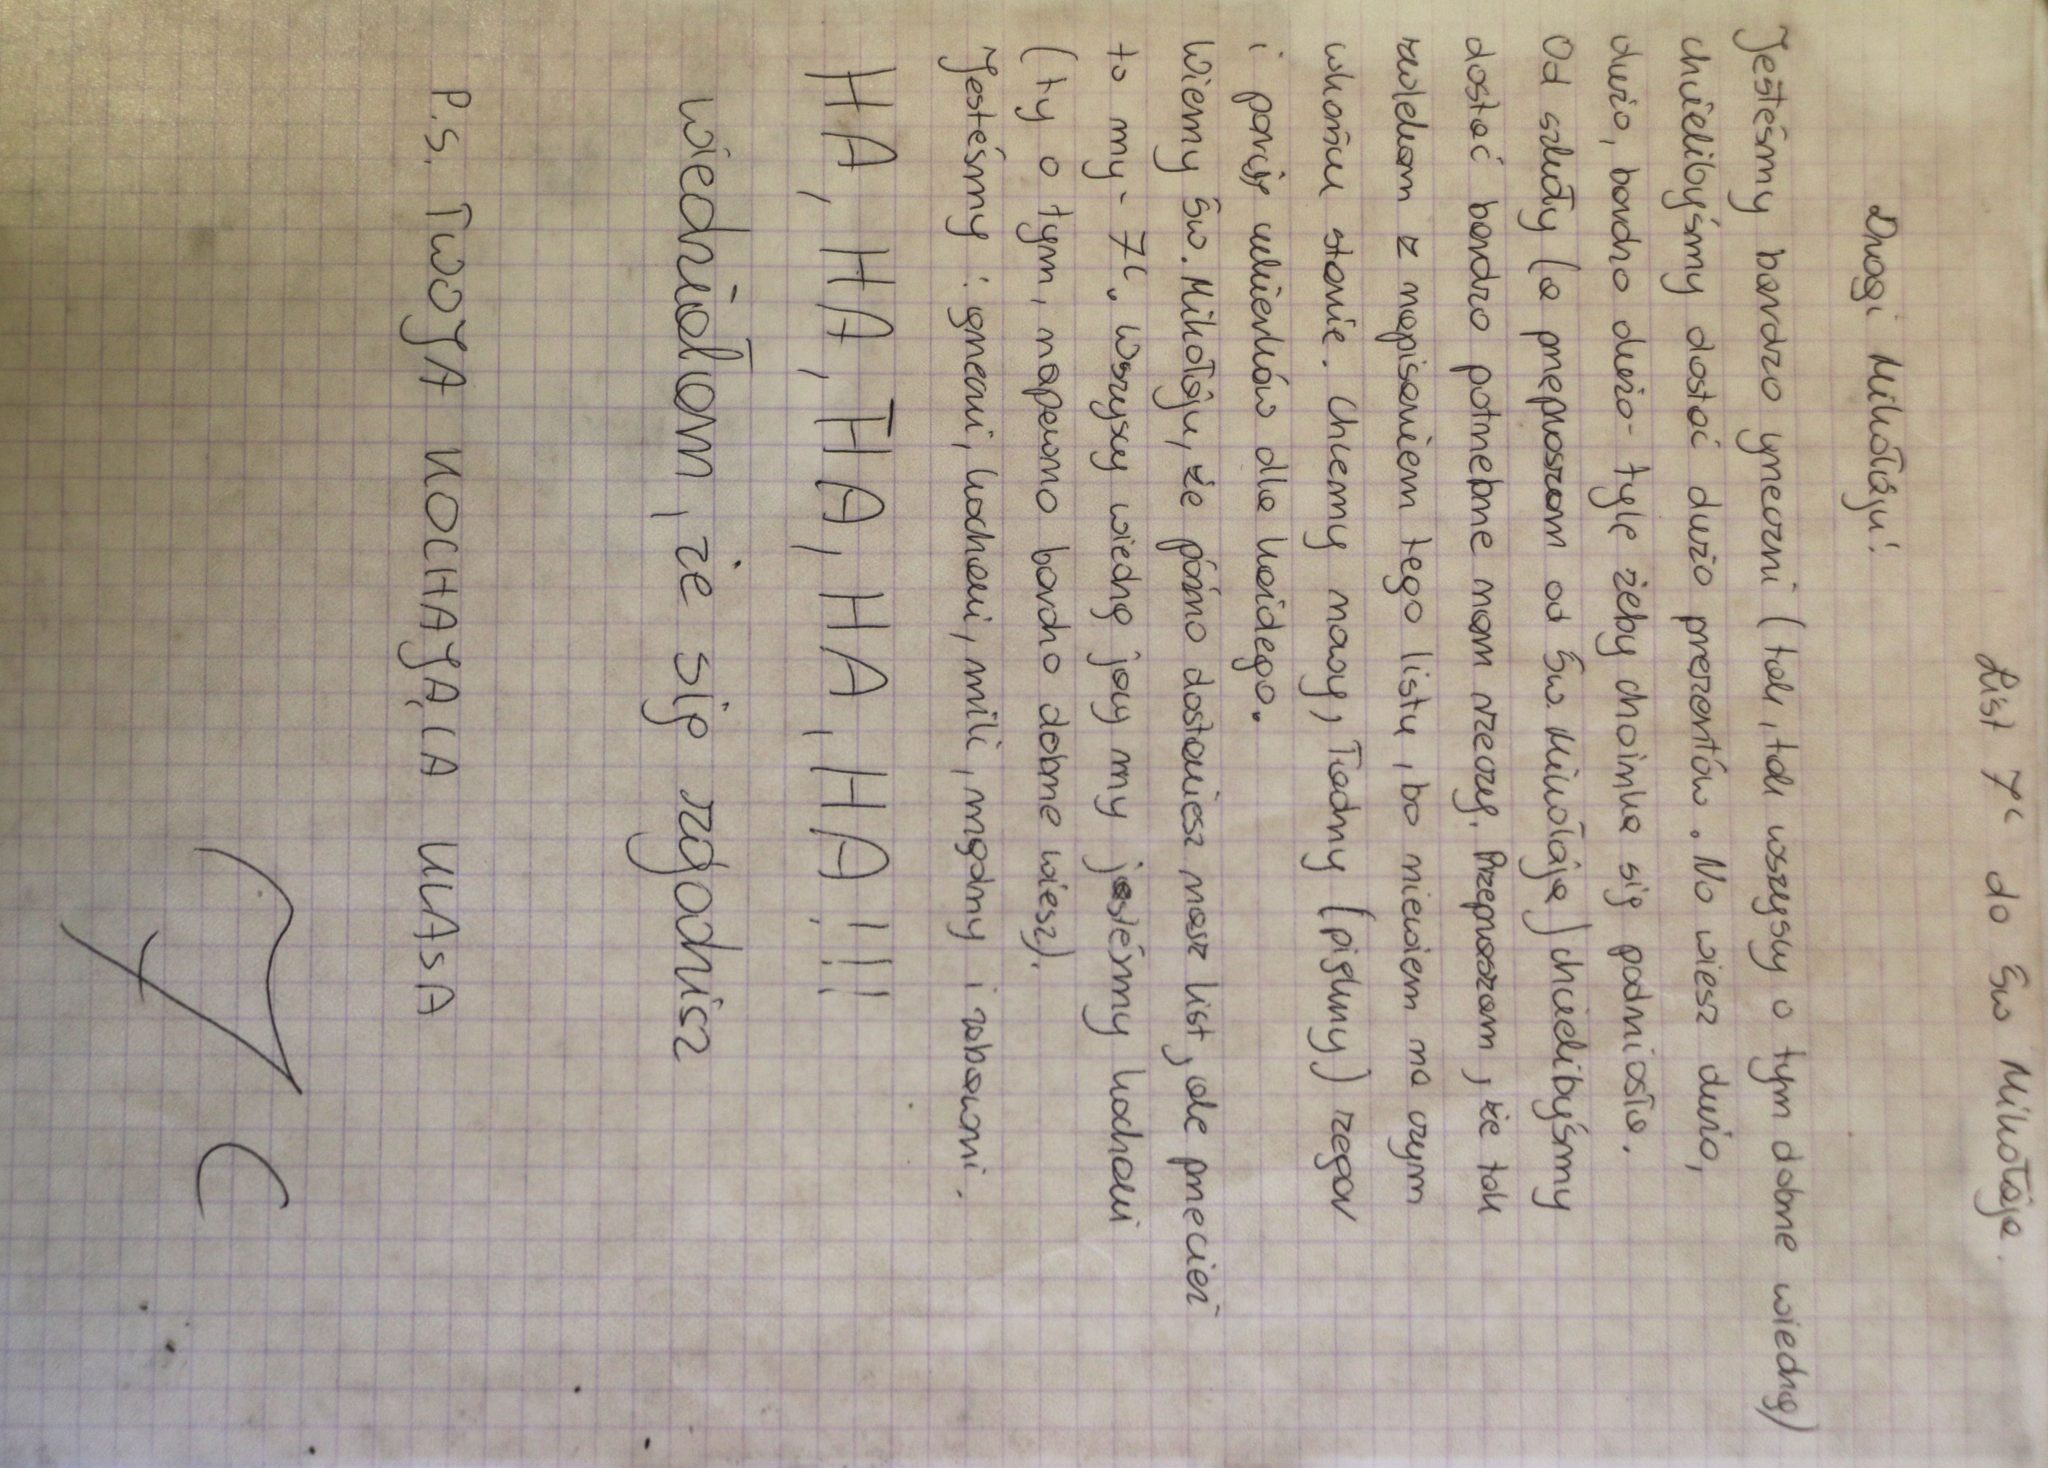 List 7c do Św Mikołaja.
Drogi Mikołaju!
Jesteśmy bardzo grzeczni (tak, tak wszyscy o tym dobrze wiedzą)
chcielibyśmy dostać dużo prezentów. No wiesz dużo,
dużo, bardzo dużo - tyle żeby choinka się podniosła.
Od szkoły (a przepraszam od Św. Mikołaja) chcielibyśmy
dostać bardzo potrzebne nam rzeczy. Przepraszam, że tak
zwlekam z napisaniem tego listu, bo niewiem na czym
wkońcu stanie. Chcemy nowy, ładny (piękny) zegar
i porcję cukierków dla każdego.
Wiemy Św. Mikołaju, że późno dostaniesz nasz list, ale przecież
to my - 7c. Wszyscy wiedzą jacy my jesteśmy kochani
(ty o tym, napewno bardzo dobrze wiesz).
Jesteśmy: grzeczni, kochani, mili, mądrzy i zabawni.
HA, HA, HA, HA, HA!!!
wiedziałam, że się zgodzisz
P.S. TWOJA KOCHAJĄCA KLASA
7 C